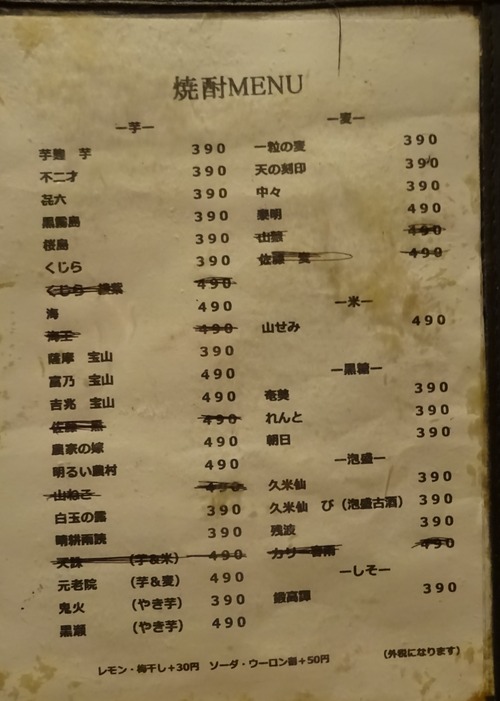 焼酎MENU
―芋―
芋麹　芋 390
不二才 390
㐂六 390
黒霧島 390
桜島 390
くじら 390
くじら 490
海 490
海王 490
薩摩　宝山 390
富乃　宝山 490
吉兆　宝山 490
佐藤　黒 490
農家の嫁 490
明るい農村 490
山ねこ 490
白玉の露 390
晴耕雨読 390
天誅　（芋&米） 490
元老院　（芋&麦） 490
鬼火　（やき芋） 390
黒瀬　（やき芋） 490
―麦―
一粒の麦 390
天の刻印 390
中々 390
黎明 490
山猿 490
佐藤　麦 490
―米―
山せみ 490
―黒糖―
奄美 390
れんと 390
朝日 390
―泡盛―
久米仙 390
久米仙　び（泡盛古酒） 390
残波 390
カリー春雨 490
―しそ―
鍛高譚 390
（外税になります）
レモン・梅干し＋30円　ソーダ・ウーロン割＋50円